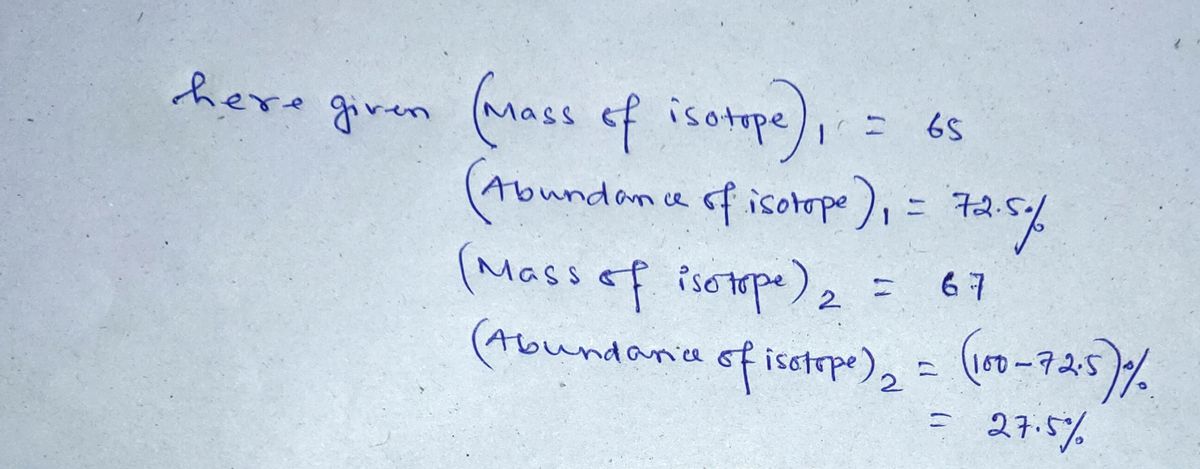 here given (Mass of isotope)₁ = 65
(Abundance of isotope)₁ = 72.5%
(Mass of isotope)₂ = 67
(Abundance of isotope)₂ = (100-72.5)%
= 27.5%